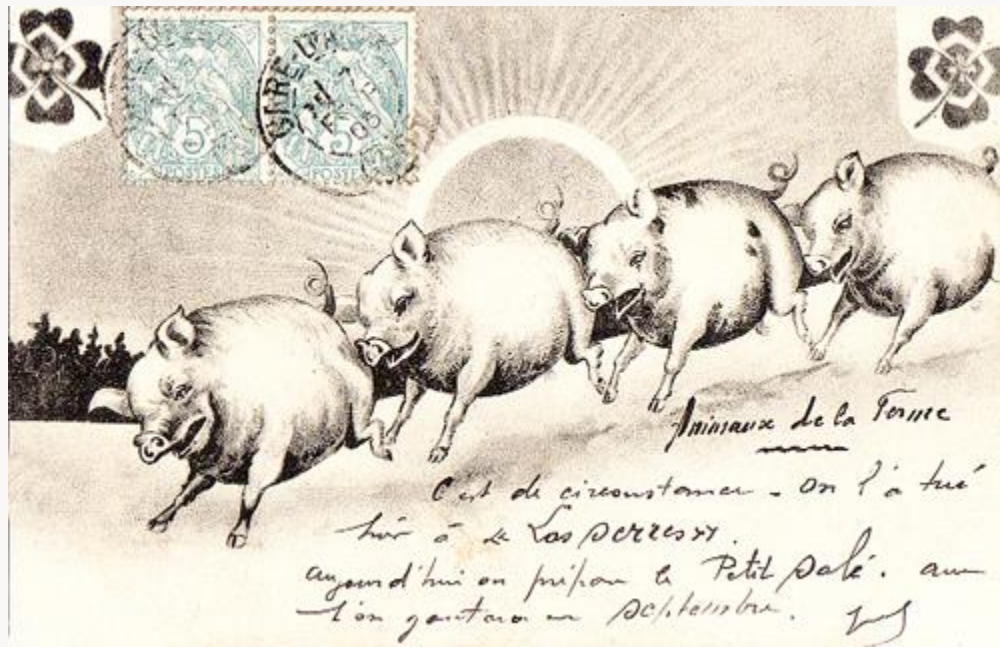 5 5
POSTES POSTES
GARE
05
Animaux de la Ferme
C'est de circonstance - On l'a tué
hier à
aujourd'hui on prépare le Petit Salé.
l'on goutera en Septembre.